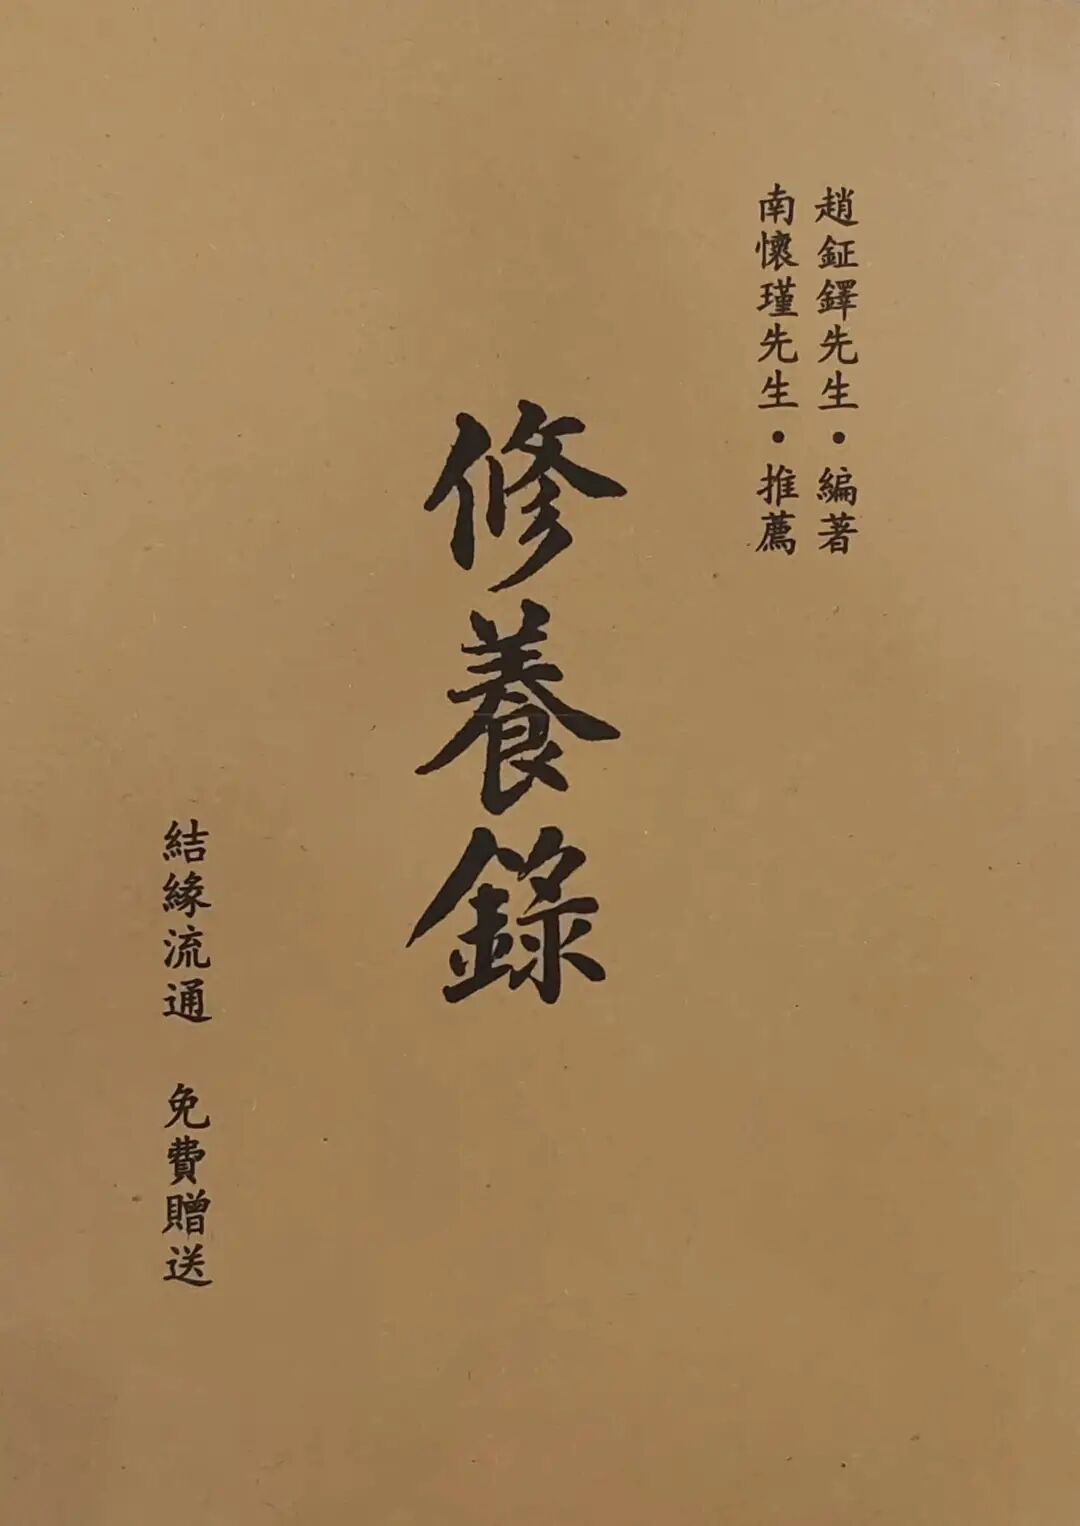 趙鉦鐸先生•編著
南懷瑾先生•推薦
修養錄
結緣流通 免費贈送